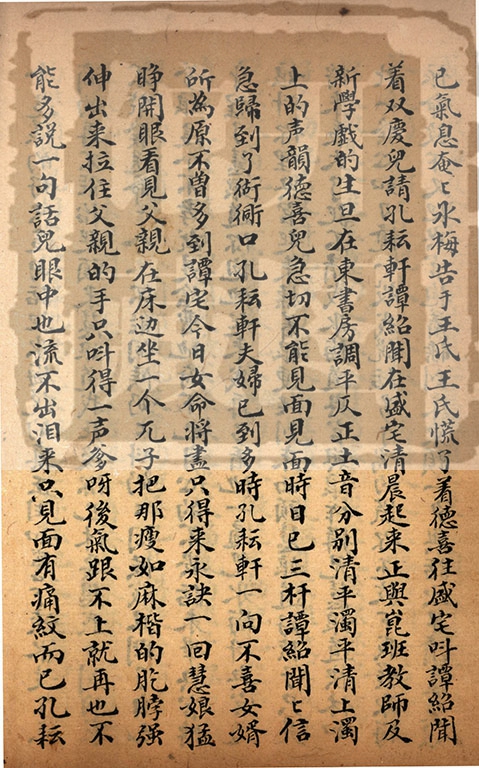 已氣息奄〻氷梅告于王氏王氏慌了着德喜往盛宅呌譚紹聞
着双慶兒請孔耘軒譚紹聞在盛宅清晨起来正與崑班教師及
新學戲的生旦在東書房調平仄正土音分别清平濁平清上濁
上的声韻德喜兒急切不能見面見面時日已三杆譚紹聞〻信
急歸到了衚衕口孔耘軒夫婦已到多時孔耘軒一向不喜女婿
所為原不曽多到譚宅今日女命將盡只得来永訣一回慧娘猛
睁開眼看見父親在床边坐一个兀子把那瘦如麻楷的胳膊强
伸出来拉住父親的手只呌得一声爹呀後氣跟不上就再也不
能多説一句話兒眼中也流不出泪来只見面有痛紋而已孔耘